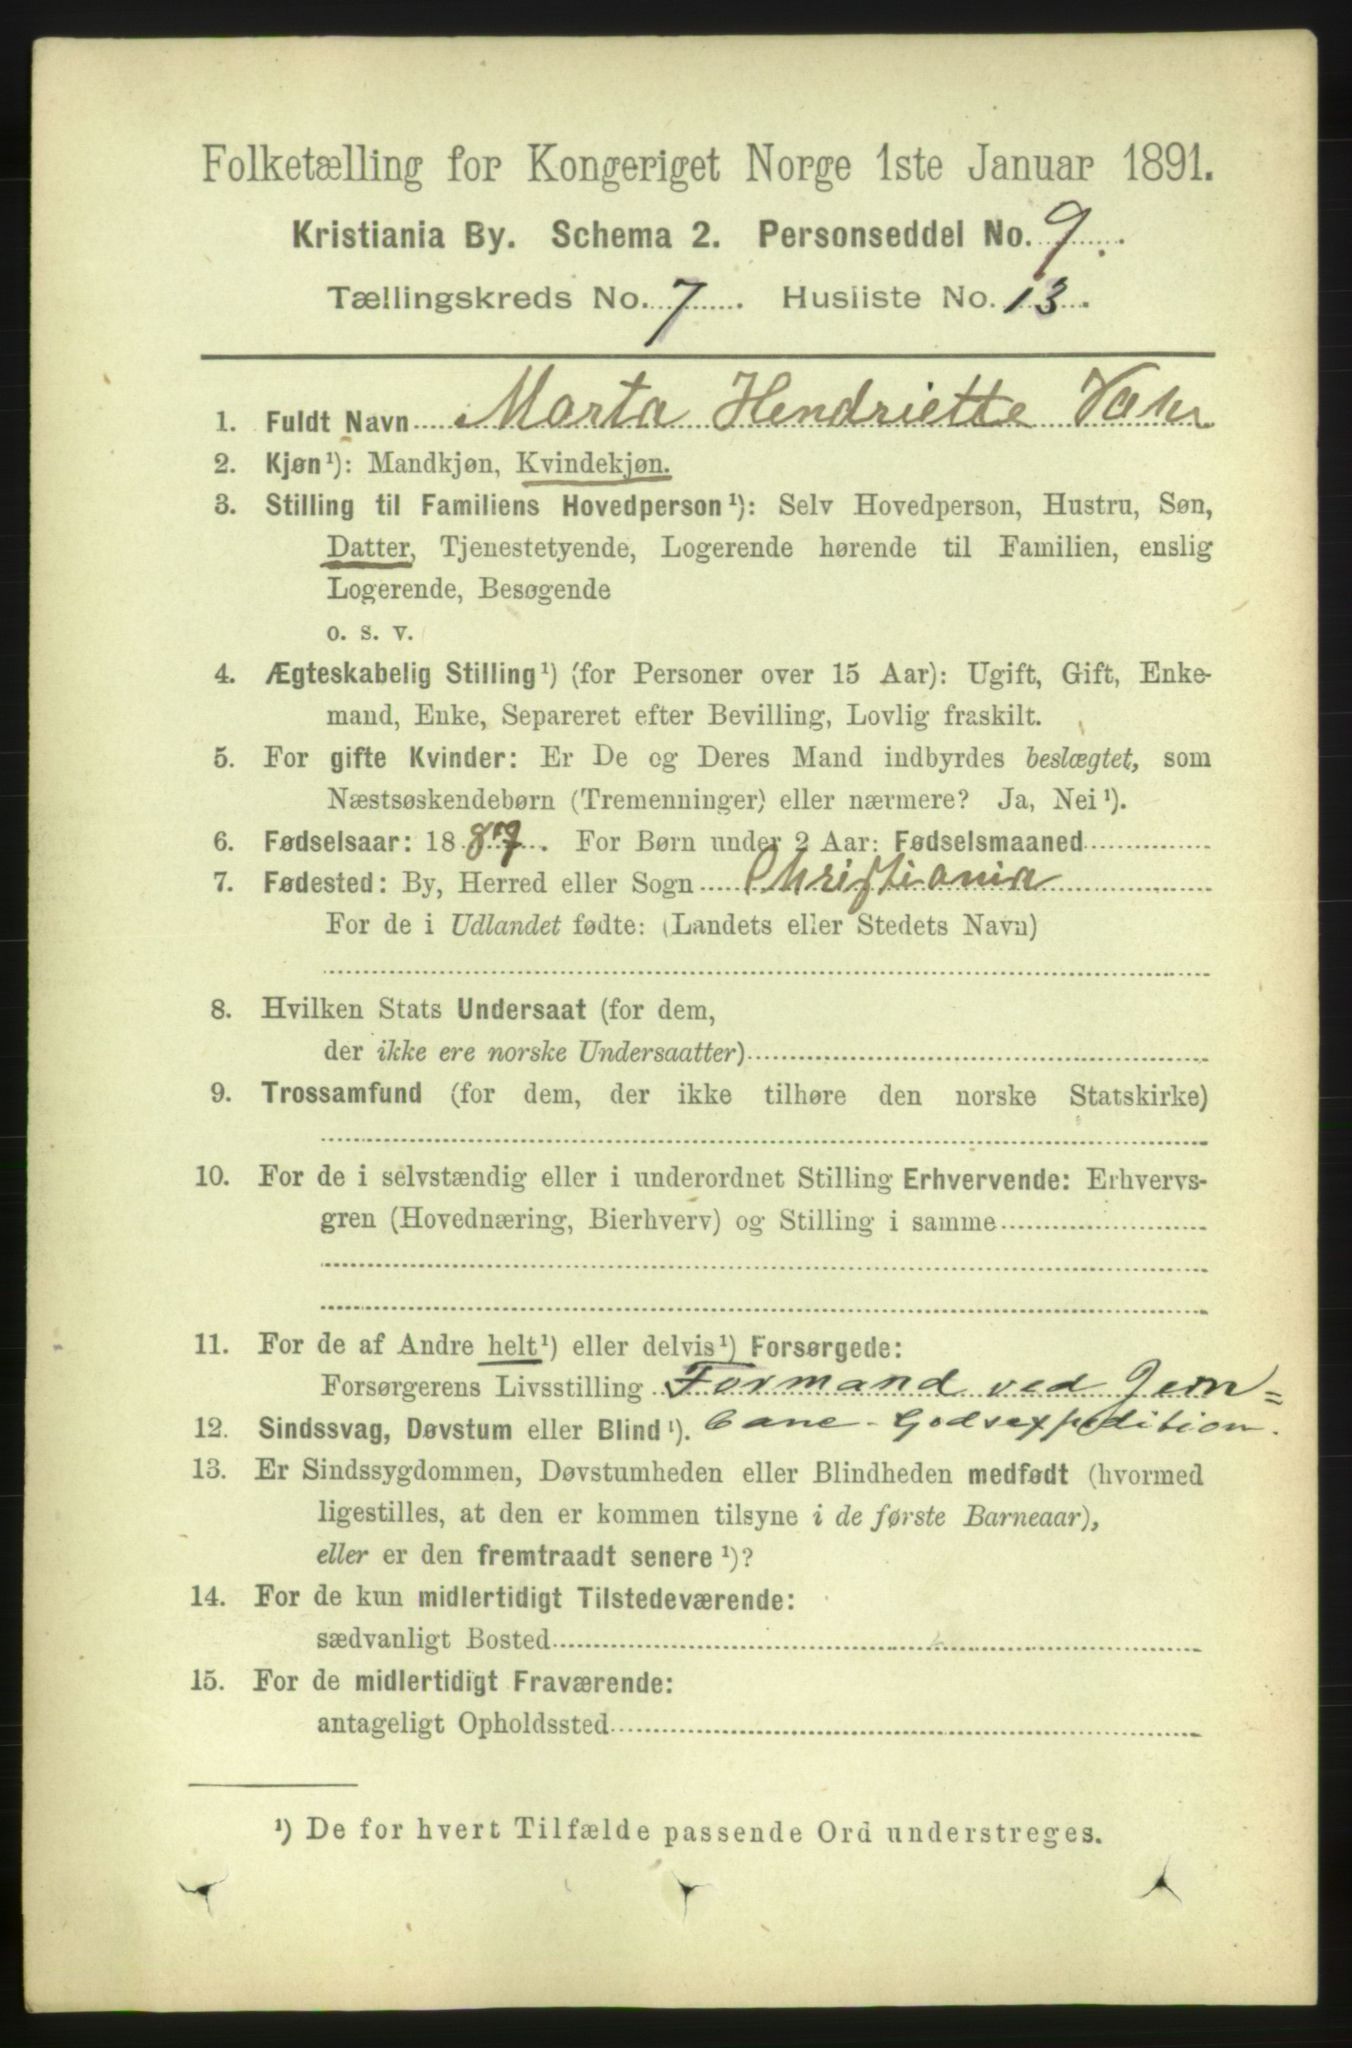 Folketælling for Kongeriget Norge 1ste Januar 1891.
Kristiania By. Schema 2. Personseddel No. 9.
Tællingskreds No. 7. Husliste No. 13.
1. Fuldt Navn Marta Hendriette
2. Kjøn¹): Mandkjøn, Kvindekjøn.
3. Stilling til Familiens Hovedperson¹): Selv Hovedperson, Hustru, Søn,
Datter, Tjenestetyende, Logerende hørende til Familien, enslig
Logerende, Besøgende
o. s. v.
4. Ægteskabelig Stilling¹) (for Personer over 15 Aar): Ugift, Gift, Enke-
mand, Enke, Separeret efter Bevilling, Lovlig fraskilt.
5. For gifte Kvinder: Er De og Deres Mand indbyrdes beslægtet, som
Næstsøskendebørn (Tremenninger) eller nærmere? Ja, Nei¹).
6. Fødselsaar: 1887. For Børn under 2 Aar: Fødselsmaaned
7. Fødested: By, Herred eller Sogn Christiania
For de i Udlandet fødte: (Landets eller Stedets Navn)
8. Hvilken Stats Undersaat (for dem,
der ikke ere norske Undersaatter)
9. Trossamfund (for dem, der ikke tilhøre den norske Statskirke)
10. For de i selvstændig eller i underordnet Stilling Erhvervende: Erhvervs-
gren (Hovednæring, Bierhverv) og Stilling i samme
11. For de af Andre helt¹) eller delvis¹) Forsørgede:
Forsørgerens Livsstilling Formand ved Jern=
12. Sindssvag, Døvstum eller Blind¹). bane-Godsexpedition.
13. Er Sindssygdommen, Døvstumheden eller Blindheden medfødt (hvormed
ligestilles, at den er kommen tilsyne i de første Barneaar),
eller er den fremtraadt senere¹)?
14. For de kun midlertidigt Tilstedeværende:
sædvanligt Bosted
15. For de midlertidigt Fraværende:
antageligt Opholdssted
¹) De for hvert Tilfælde passende Ord understreges.